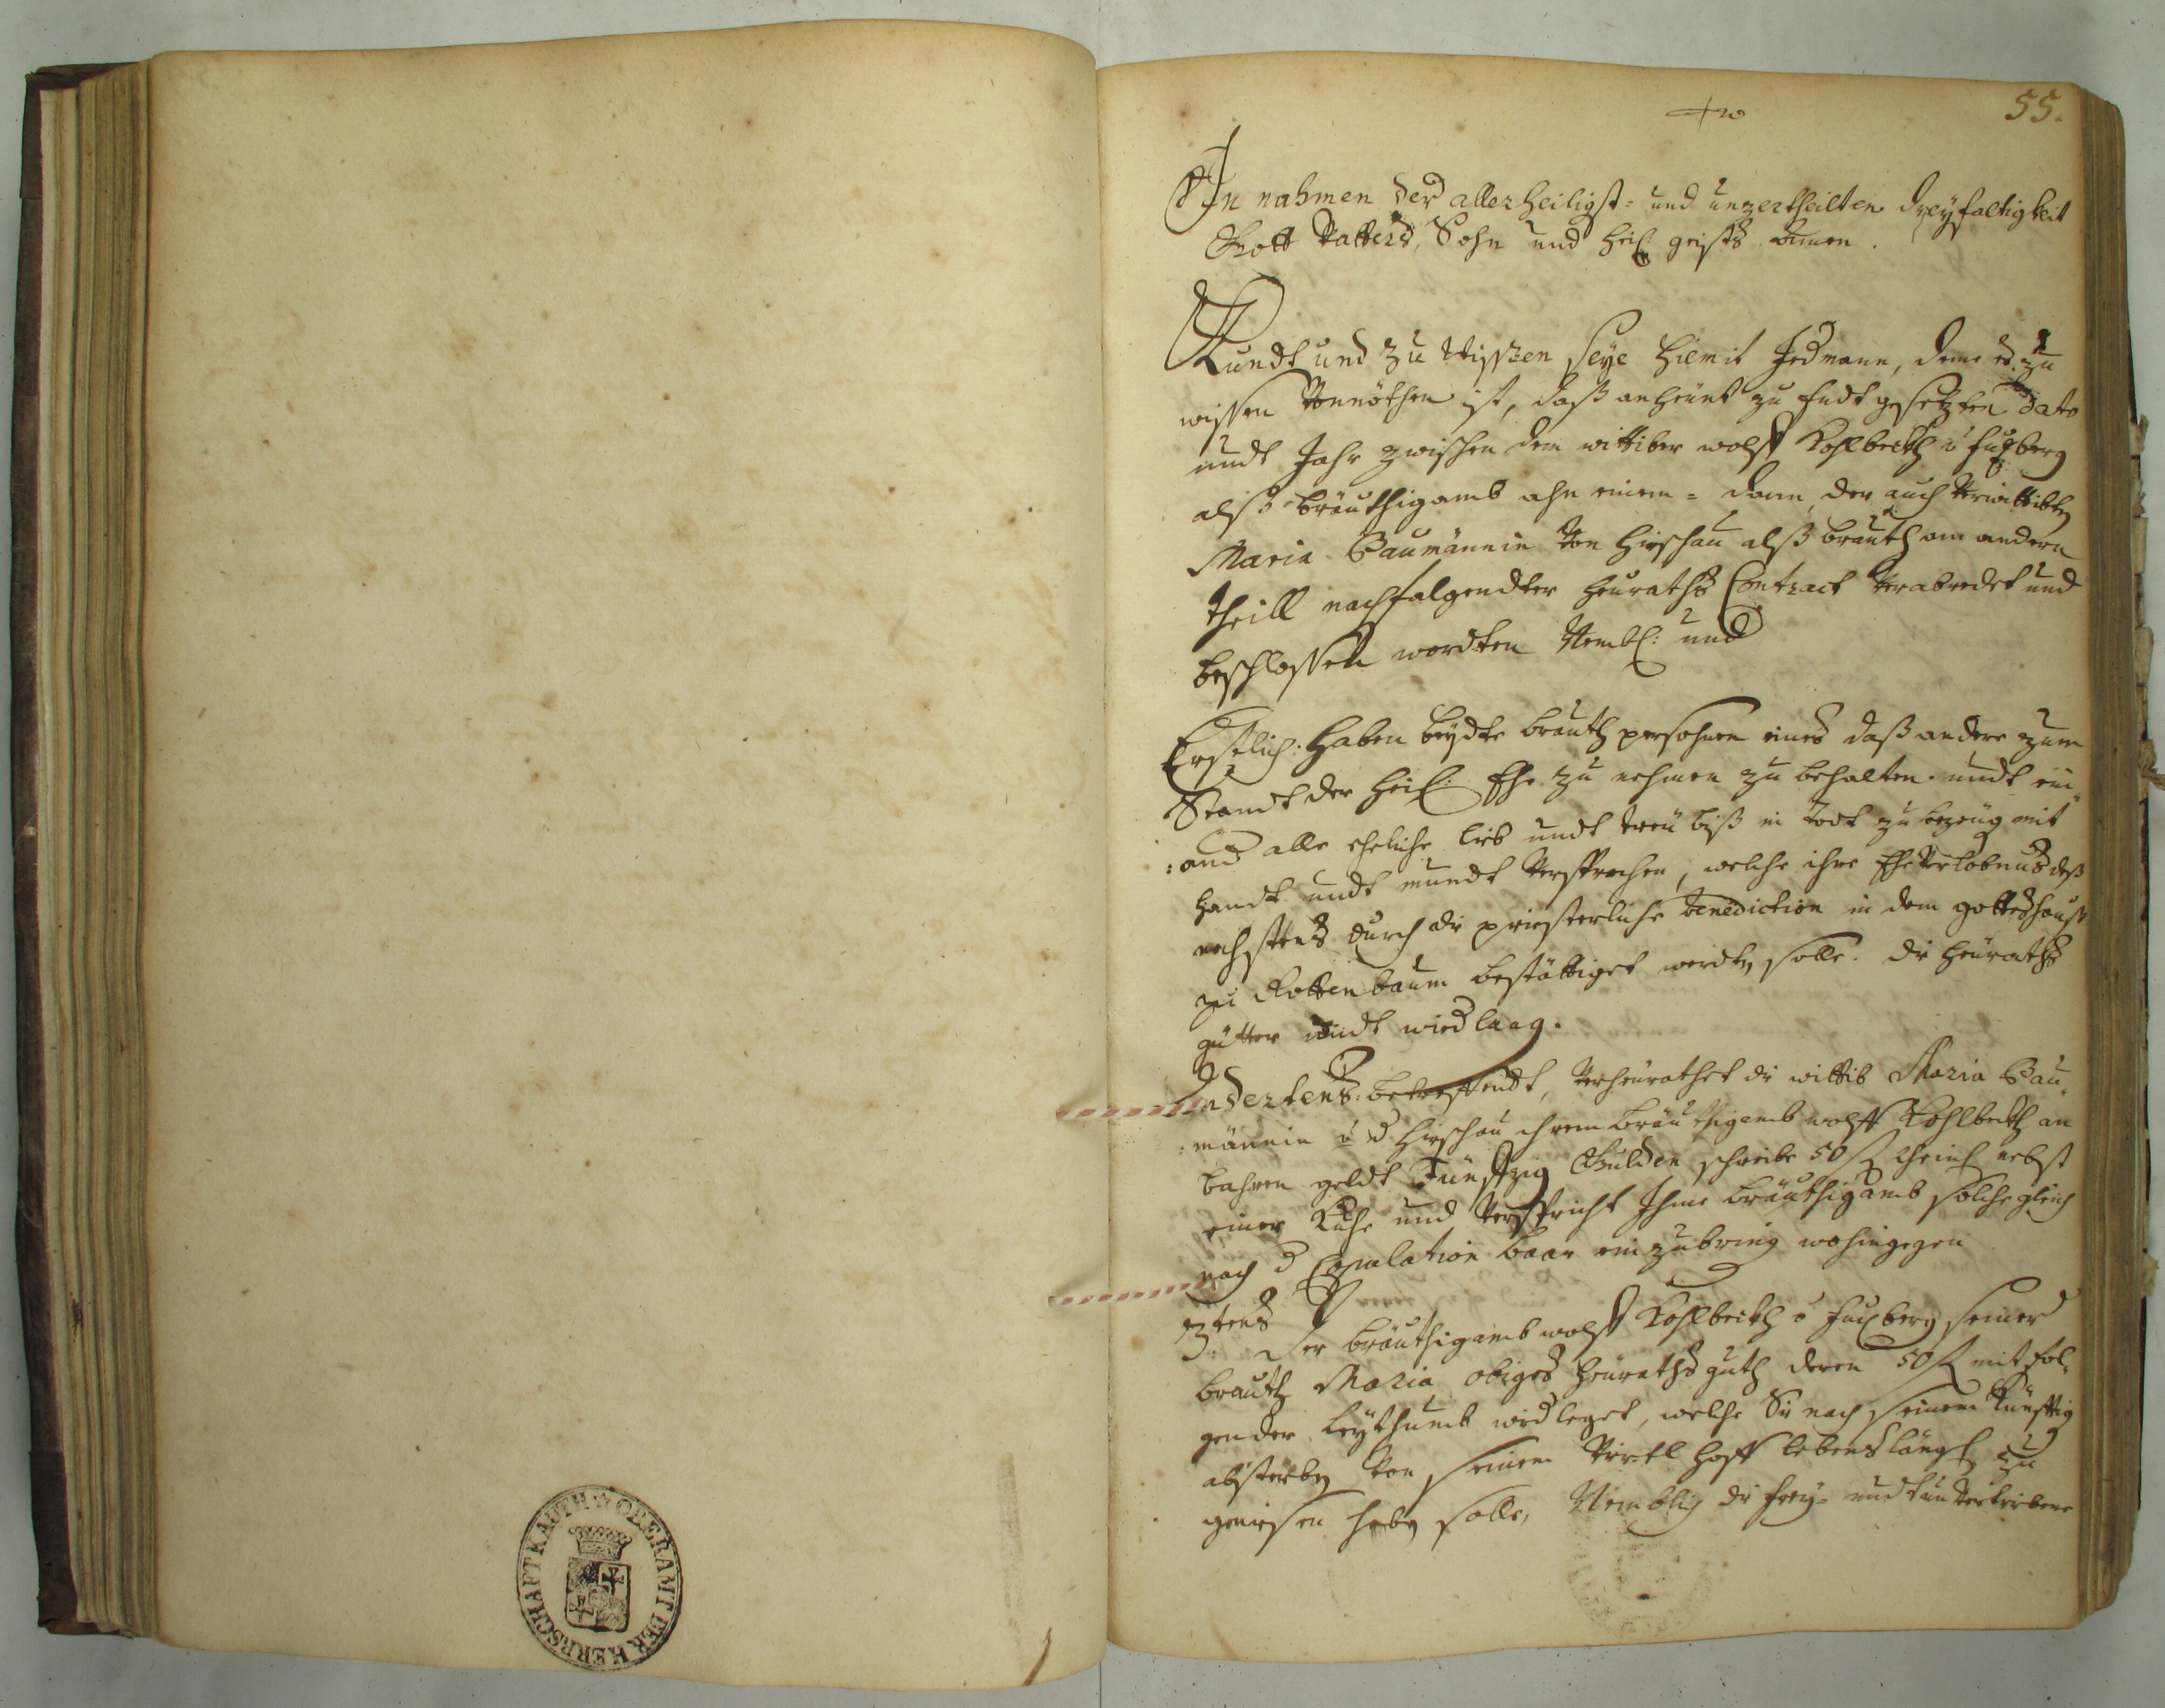 55.
In nahmen der allerheiligst- und unzertheilten dreyfaltigkeit
Gott Vatters, Sohn und heil: geists Amen.
Kundt und zu Wissen seye hiemit Jedmann, deme es zu
wissen Vonnöthen ist, daß anheünt zu Endt gesetzten dato
undt Jahr zwischen dem wittiber wolff Kohlbeckh v
alß bräuthigamb ahn einem- dann der auch Verwittibten
Maria Baumännin Von Hirschau alß brauth am andern
theill nachfolgendter heuraths Contract Verabredet und
beschlossen wordten Nembl: und
Erstlich: haben beydte brauth persohnen eines daß andere zum
Standt der heil: Ehe zu nehmen zu behalten undt ein
:and alle eheliche lieb undt treü biß in Todt zu bezeüg mit
handt undt mundt Versprochen, welche ihre Ehe Verlobnus deß
nechstens durch die priesterliche benediction in dem gotteshauß
zu Rottenbaum bestättiget werdten solle. die heüraths
gütter undt widlaag.
Andertens: betreffendt, Verheürathet die wittib Maria Bau
:männin v d Hirschau ihrem bräuthigamb wolff Kohlbeckh an
bahren geldt Fünffzig Gulden schreibe 50 f Rheinl nebst
einer Kuhe und Verspricht Ihme bräuthigamb solche gleich
nach d Copulation baar einzubring wohingegen
3tens
Der bräuthigamb wolff Kohlbeckh v seiner
brauth Maria obiges heüraths guth deren 50 f mit fol
gender Leythumb widleget, welche Sie nach seinem künfftig
absterben Von seinem Virtl hoff lebenslängl zu
geniesen haben solle, Nemblich die frey- undt
OBERAMT DER HERRSCHAFT KAUTH